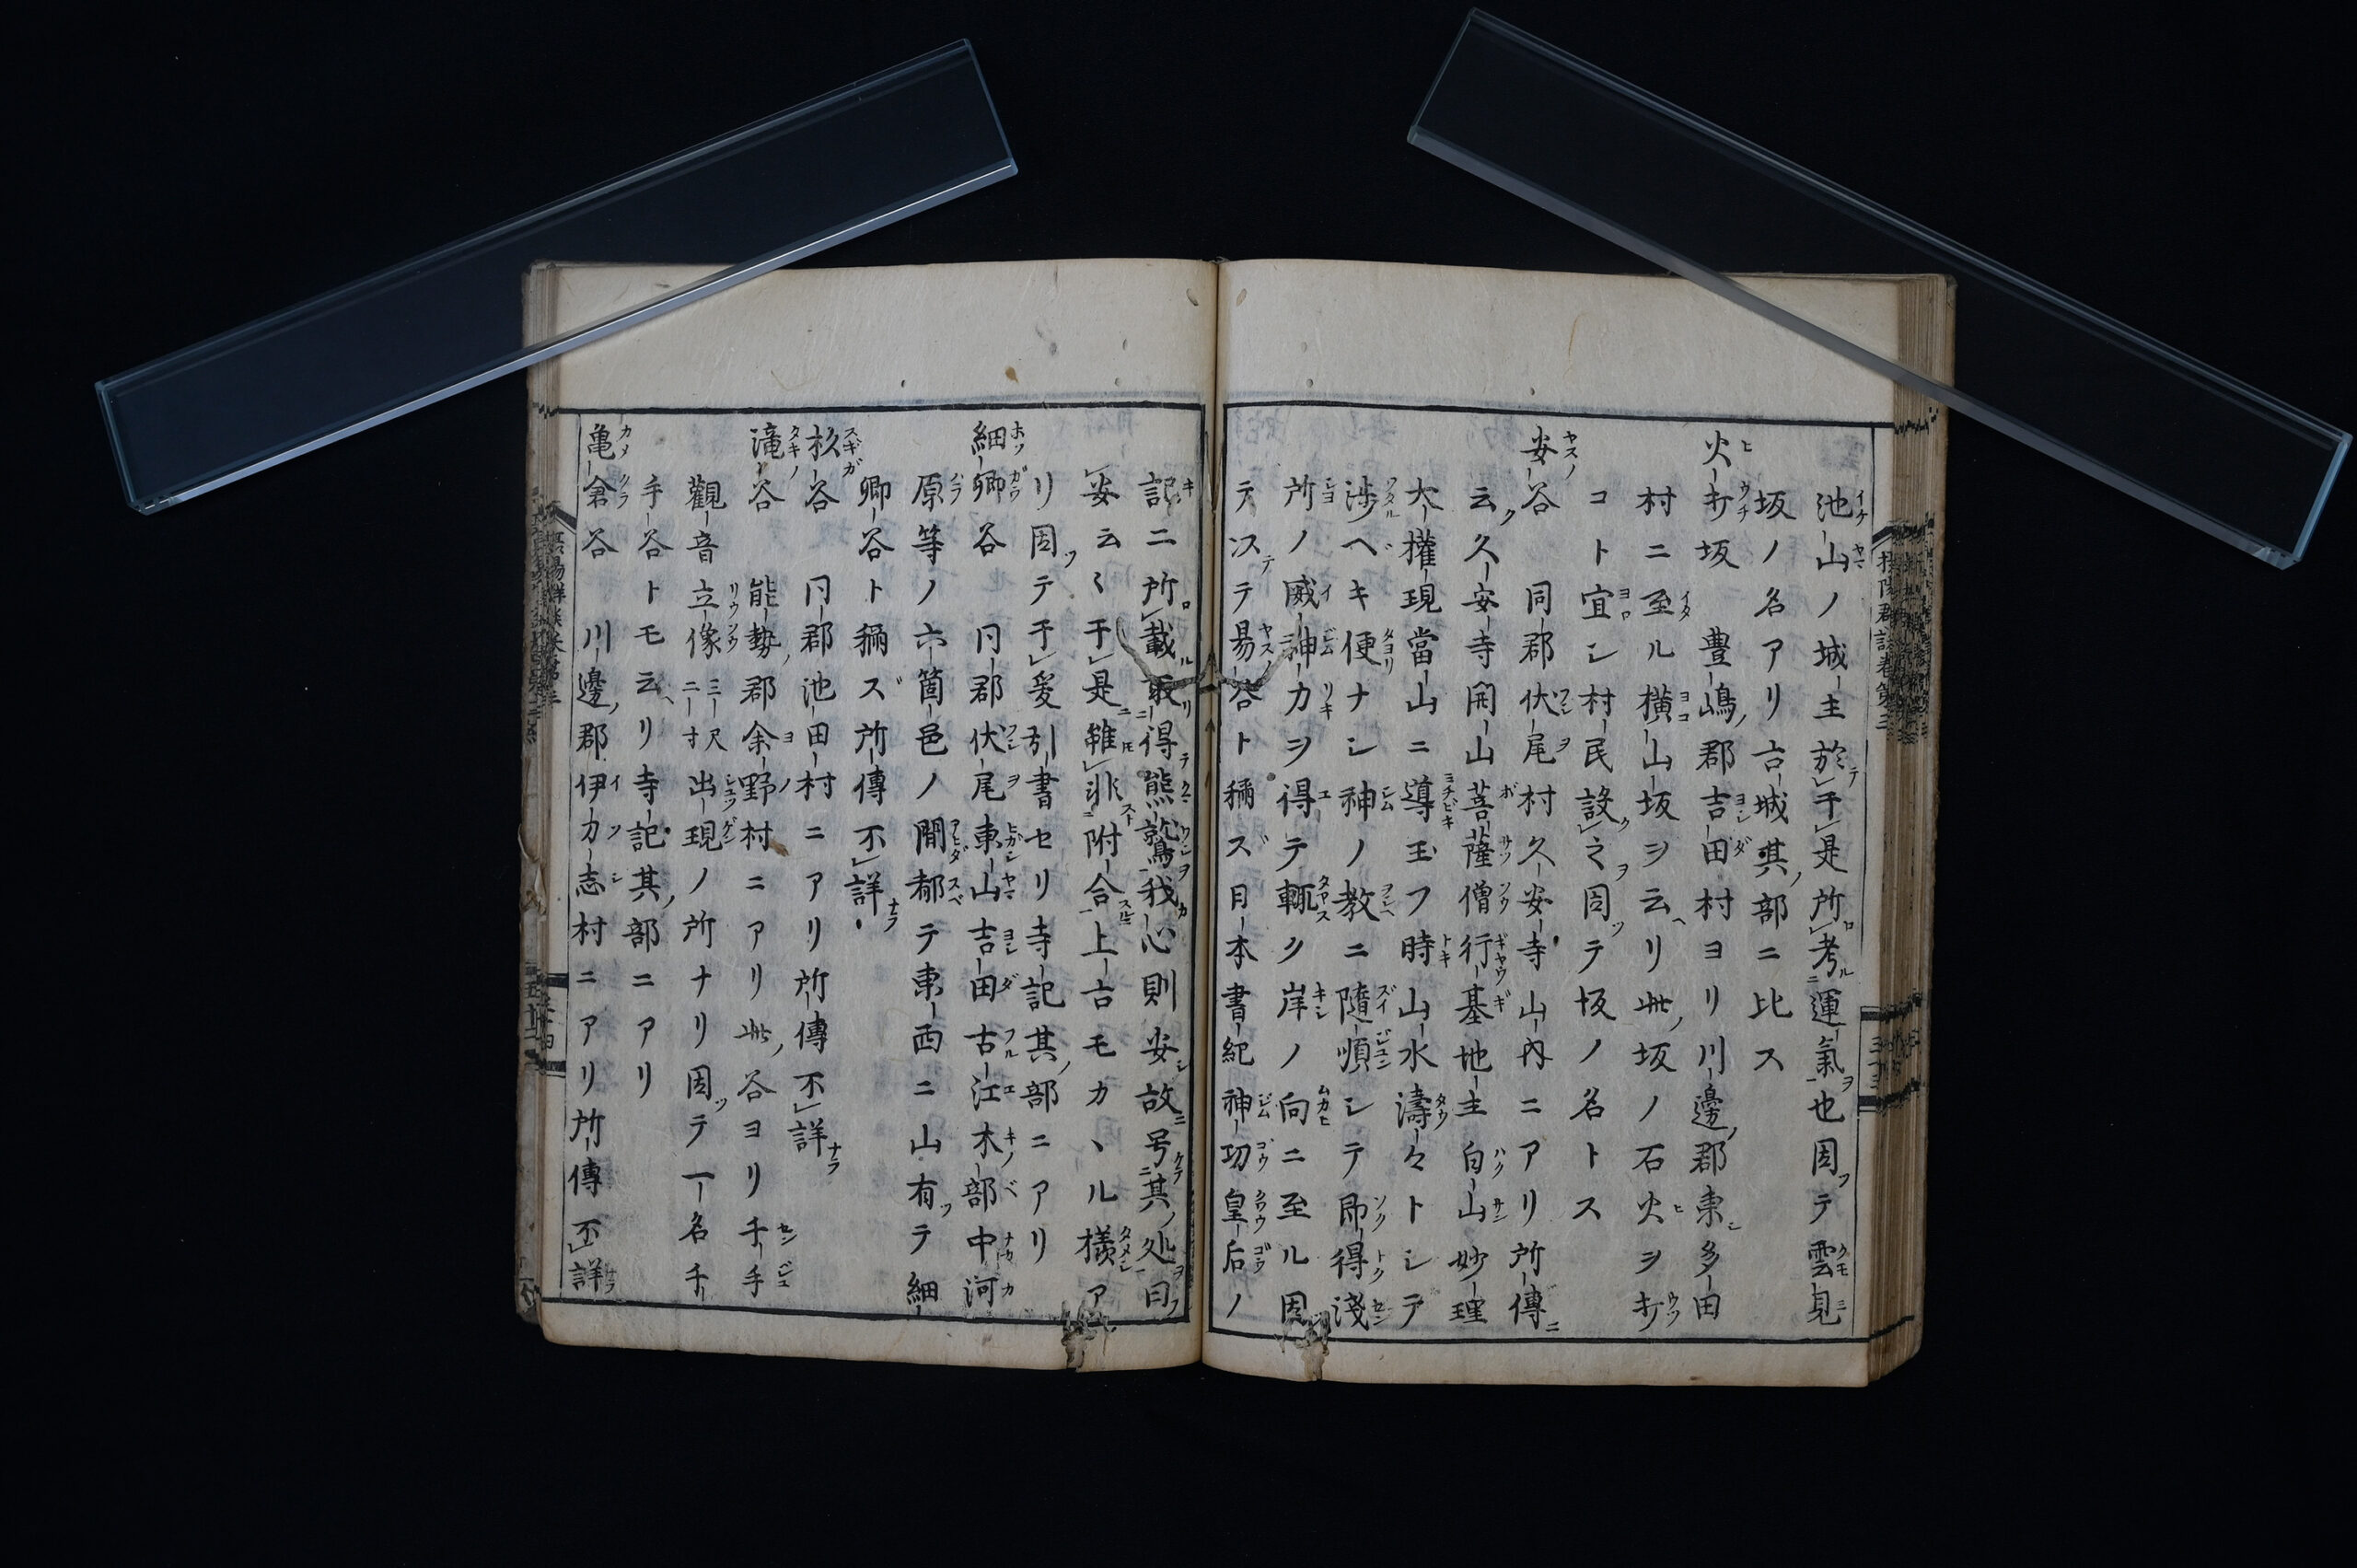 池山ノ城主於于是所考運氣也因テ雲見
坂ノ名アリ古城其部ニ比ス
火打坂 豊嶋郡吉田村ヨリ川邊郡東多田
村ニ至ル横山坂ヲ云リ此坂ノ石火ヲ打
コト宜シ村民設之因テ坂ノ名トス
安谷 同郡伏尾村久安寺山内ニアリ所傳
云久安寺開山菩薩僧行基地主白山妙理
大權現當山ニ導玉フ時山水濤々トシテ
渉ヘキ便ナシ神ノ教ニ隨順シテ即得淺
所ノ威神力ヲ得テ輒ク岸ノ向ニ至ル因
テ次テ易谷ト稱ズ日本書紀神功皇后ノ
記ニ所載取得熊鷲我心則安故号其処曰
安云〻于是雖非附合上古モカヽル様ア
リ因テ于爰引書セリ寺記其部ニアリ
細郷谷 同郡伏尾東山吉田古江木部中河
原等ノ六箇邑ノ間都テ東西ニ山有テ細
郷谷ト稱ズ所傳不詳
杉谷 同郡池田村ニアリ所傳不詳
滝谷 能勢郡余野村ニアリ此谷ヨリ千手
觀音立像二寸三尺出現ノ所ナリ因テ一名千
手谷トモ云リ寺記其部ニアリ
亀倉谷 川邊郡伊力志村ニアリ所傳不詳